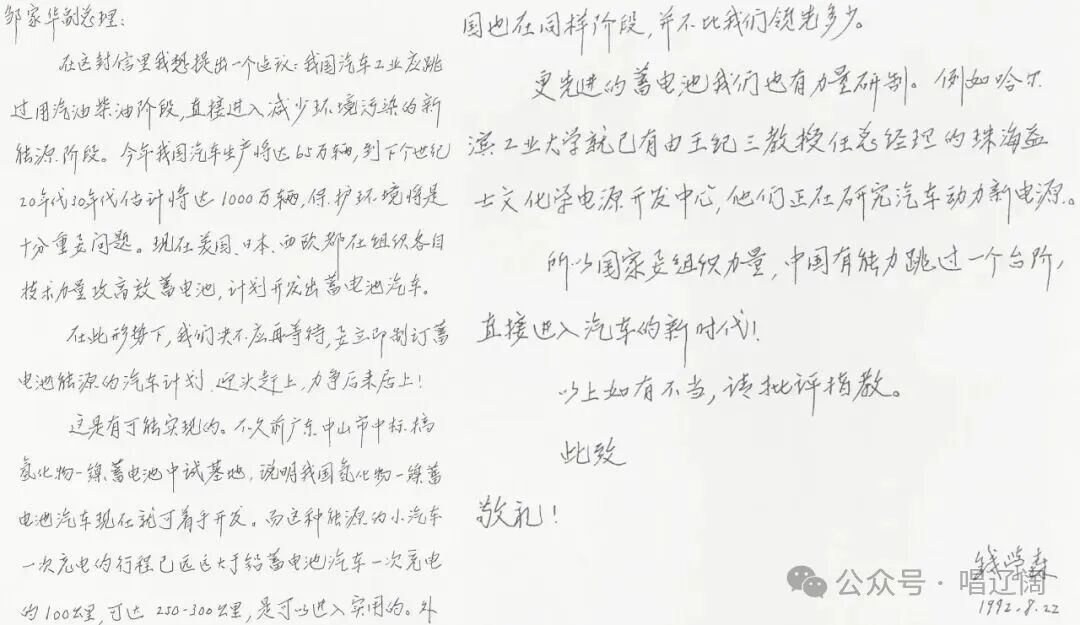 邹家华副总理：
在这封信里我想提出一个建议：我国汽车工业应跳
过用汽油柴油阶段，直接进入减少环境污染的新
能源阶段。今年我国汽车生产将达65万辆，到下个世纪
20年代30年代估计将达1000万辆，保护环境将是
十分重要问题。现在美国、日本、西欧都在组织各自
技术力量攻高效蓄电池，计划开发出蓄电池汽车。
在此形势下，我们决不应再等待，要立即制订蓄
电池能源的汽车计划，迎头赶上，力争后来居上！
这是有可能实现的。不久前广东中山市中标搞
氢化物—镍蓄电池中试基地，说明我国氢化物—镍蓄
电池汽车现在就可着手开发。而这种能源的小汽车
一次充电的行程已远远大于铅蓄电池汽车一次充电
的100公里，可达250-300公里，是可以进入实用的。外
国也在同样阶段，并不比我们领先多少。
更先进的蓄电池我们也有力量研制。例如哈尔
滨工业大学就已有由王纪三教授任总经理的珠海益
士文化学电源开发中心，他们正在研究汽车动力新电源。
所以国家要组织力量，中国有能力跳过一个台阶，
直接进入汽车的新时代！
以上如有不当，请批评指教。
此致
敬礼！
钱学森
1992.8.22
公众号·唱辽阔